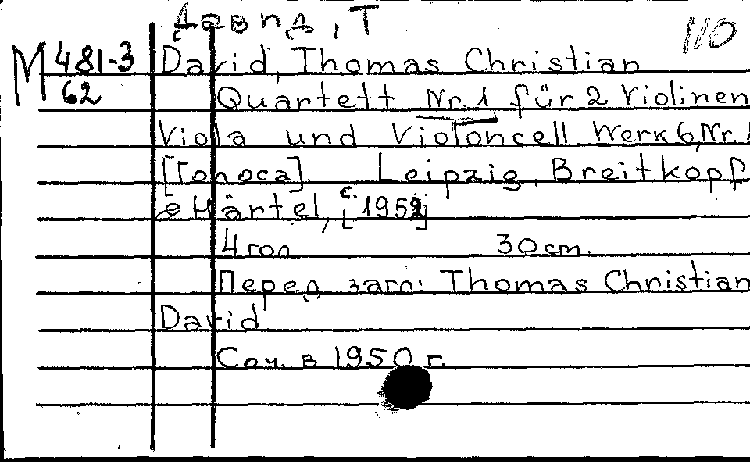 Давид, Т
110
М 481-3
62
David, Thomas Christian
Quartett Nr. 1 für 2 Violinen
Viola und Violoncell Werk 6, Nr. 1
[Голоса] Leipzig, Breitkopf
& Härtel, [с. 1952]
4 гол. 30 cm.
Перед загл: Thomas Christian
David
Соч. в 1950 г.